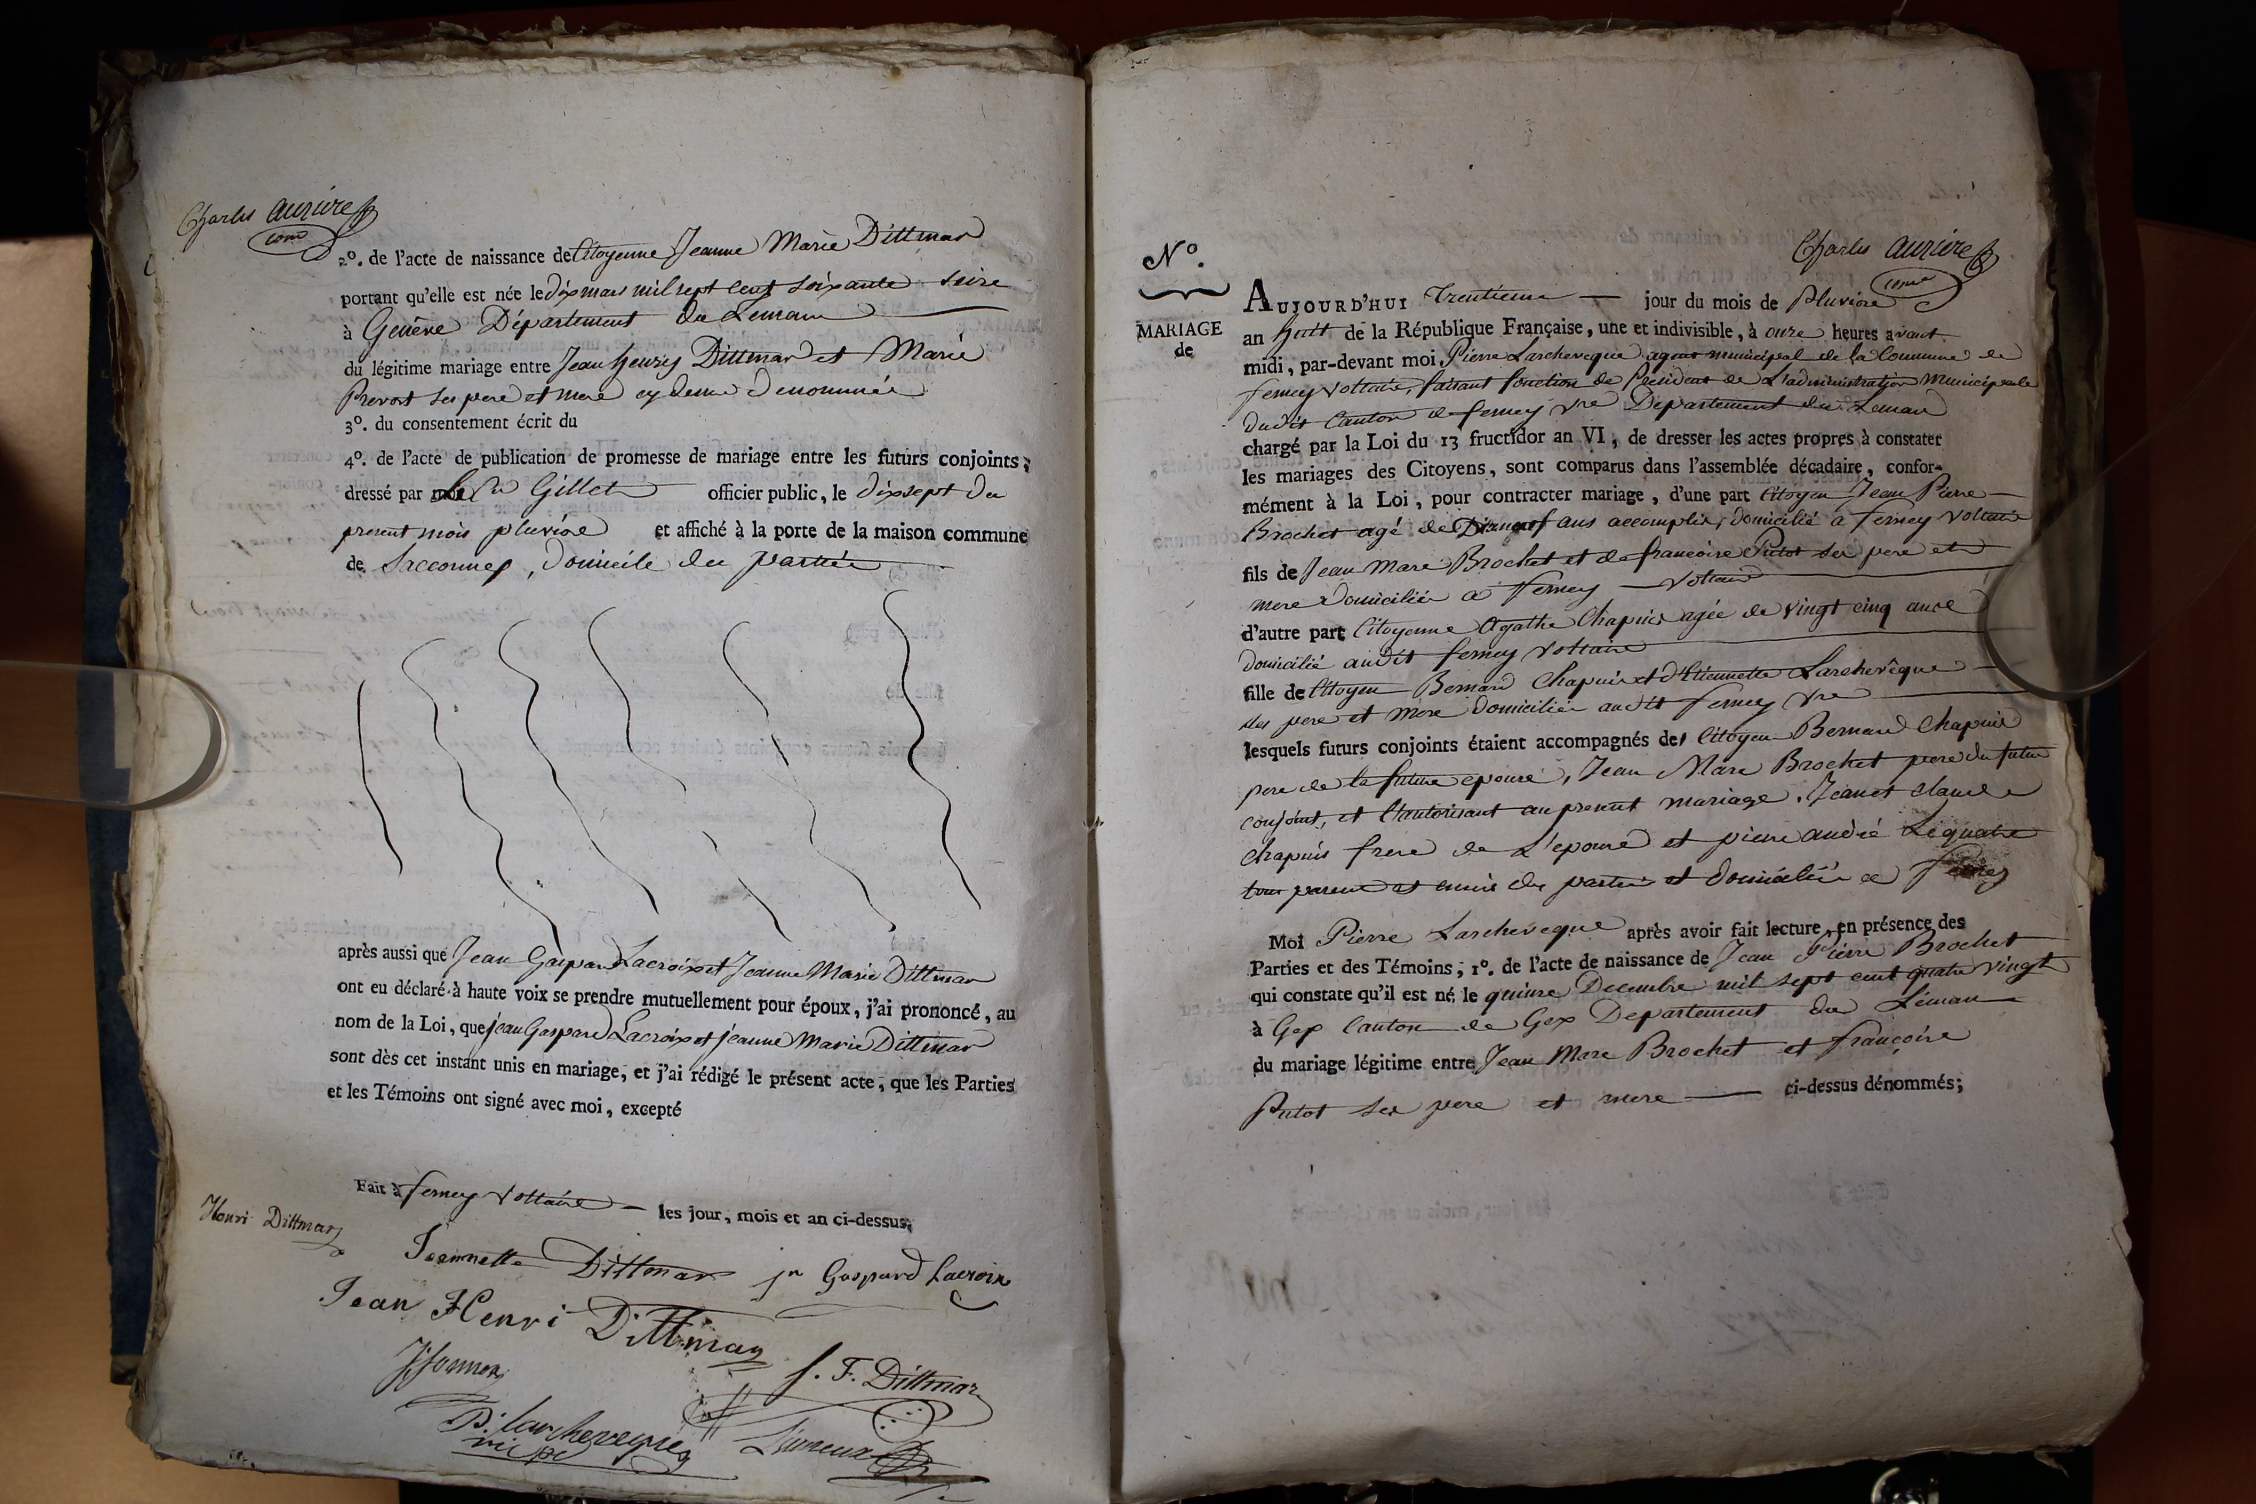 Charles auziere
comre
2º. de l'acte de naissance de Citoyenne Jeanne Marie Dittmar
portant qu'elle est née le dix mars mil sept cent soixante seize
à Genève Département du Leman
du légitime mariage entre Jean henry Dittmar et Marie
Prevost ses pere et mere cy dessus denommés
3º. du consentement écrit du
4º. de l'acte de publication de promesse de mariage entre les futurs conjoints;
dressé par Le Cn Gillet officier public, le dixsept du
present mois pluviose et affiché à la porte de la maison commune
de Sacconnex, domicile des parties
après aussi que Jean Gaspard Lacroix et Jeanne Marie Dittmar
ont eu déclaré à haute voix se prendre mutuellement pour époux, j'ai prononcé, au
nom de la Loi, que jean Gaspard Lacroix et jeanne Marie Dittmar
sont dès cet instant unis en mariage, et j'ai rédigé le présent acte, que les Parties
et les Témoins ont signé avec moi, excepté
Fait à ferney voltaire les jour, mois et an ci-dessus;
Henri Dittmar
Jeannette Dittmar jn Gaspard Lacroix
Jean Henri Dittmar
J. F. Dittmar
P. Larcheveque
Charles auziere
comre
Nº.
MARIAGE
de
AUJOURD'HUI trentieme jour du mois de Pluviose
an huit de la République Française, une et indivisible, à onze heures avant
midi, par-devant moi Pierre Larcheveque agent municipal de la Commune de
ferney voltaire, faisant fonction de President de L'administration Municipale
dudit Canton de ferney vre Département du Leman
chargé par la Loi du 13 fructidor an VI, de dresser les actes propres à constater
les mariages des Citoyens, sont comparus dans l'assemblée décadaire, confor-
mément à la Loi, pour contracter mariage, d'une part Citoyen Jean Pierre
Brochet agé de Dixneuf ans accomplis, domicilié a ferney voltaire
fils de Jean Marc Brochet et de francoise Putot ses pere et
mere domiciliés a ferney voltaire
d'autre part Citoyenne Agathe Chapuis agée de vingt cinq ans
domicilié audit ferney voltaire
fille de Citoyen Bernard Chapuis et d'Etiennette Larchevêque
ses pere et mere domiciliés audit ferney vre
lesquels futurs conjoints étaient accompagnés des Citoyen Bernard Chapuis
pere de la future epouse, Jean Marc Brochet pere du futur
conjoint, et l'autorisant au present mariage, Jean et claude
chapuis frere de L'epouse et pierre andré Le quatre
tous parens et amis des parties et domiciliés a ferney
Moi Pierre Larcheveque après avoir fait lecture en présence des
Parties et des Témoins; 1º. de l'acte de naissance de Jean Pierre Brochet
qui constate qu'il est né le quinze Decembre mil sept cent quatre vingt
à Gex Canton de Gex Departement du Léman
du mariage légitime entre Jean Marc Brochet et françoise
Putot ses pere et mere ci-dessus dénommés;